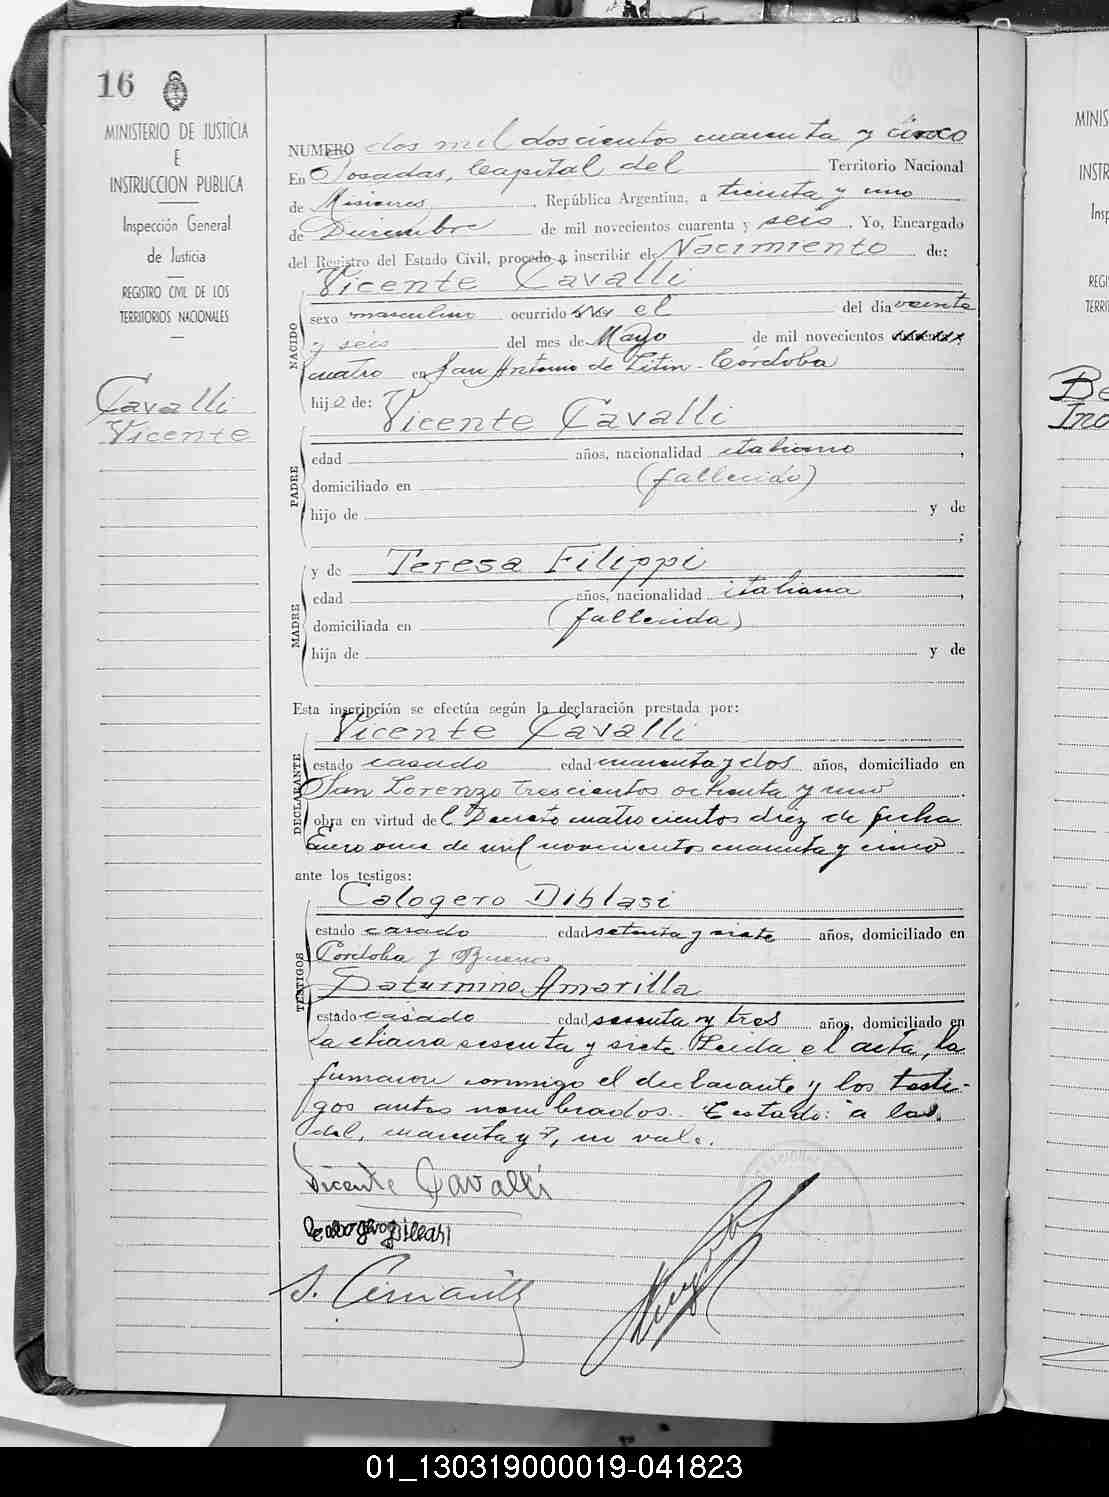 16
MINISTERIO DE JUSTICIA
E
INSTRUCCION PUBLICA
Inspección General
de Justicia
REGISTRO CIVIL DE LOS
TERRITORIOS NACIONALES
Cavalli
Vicente
NUMERO dos mil doscientos cuarenta y cinco
En Posadas, Capital del Territorio Nacional
de Misiones, República Argentina, a treinta y uno
de Diciembre de mil novecientos cuarenta y seis. Yo, Encargado
del Registro del Estado Civil, procedo a inscribir el Nacimiento de:
NACIDO
Vicente Cavalli
sexo masculino ocurrido el del día veinte
y seis del mes de Mayo de mil novecientos
cuatro en San Antonio de Litin - Córdoba
hijo de: Vicente Cavalli
PADRE
edad años, nacionalidad italiano,
domiciliado en (fallecido)
hijo de y de
;
MADRE
y de Teresa Filippi
edad años, nacionalidad italiana,
domiciliada en (fallecida)
hija de y de
Esta inscripción se efectúa según la declaración prestada por:
DECLARANTE
Vicente Cavalli
estado casado edad cuarenta y dos años, domiciliado en
San Lorenzo trescientos ochenta y uno.
obra en virtud del Decreto cuatrocientos diez de fecha
Enero once de mil novecientos cuarenta y cinco
ante los testigos:
TESTIGOS
Calogero Diblasi
estado casado edad setenta y siete años, domiciliado en
Córdoba y Buenos
Saturnino Amarilla
estado casado edad sesenta y tres años, domiciliado en
La chacra sesenta y siete. Leida el acta, la
firmaron conmigo el declarante y los testi-
gos antes nombrados. Testado: a las.
del, cuarenta y ?, no vale.
Vicente Cavalli
MINIS
INSTR
Insp
REGI
TERRI
Be
01_130319000019-041823